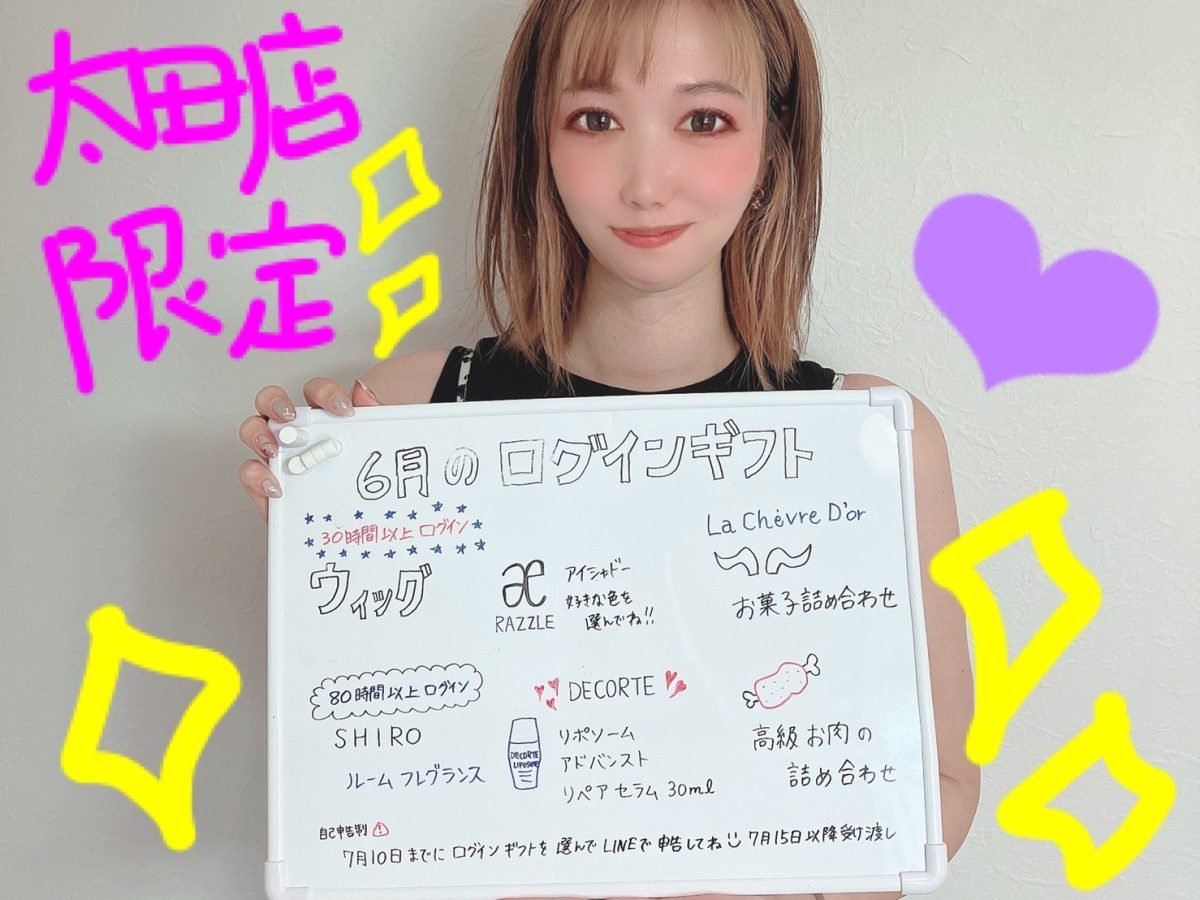 太田店
限定
6月のログインギフト
30時間以上ログイン
ウィッグ
æ
RAZZLE
アイシャドー
好きな色を
選んでね!!
La Chèvre D'or
お菓子詰め合わせ
80時間以上ログイン
SHIRO
ルームフレグランス
DECORTE
DECORTE
LIPOSOME
リポソーム
アドバンスト
リペアセラム 30ml
高級お肉の
詰め合わせ
自己申告制
7月10日までにログインギフトを選んでLINEで申告してね 7月15日以降受け渡し